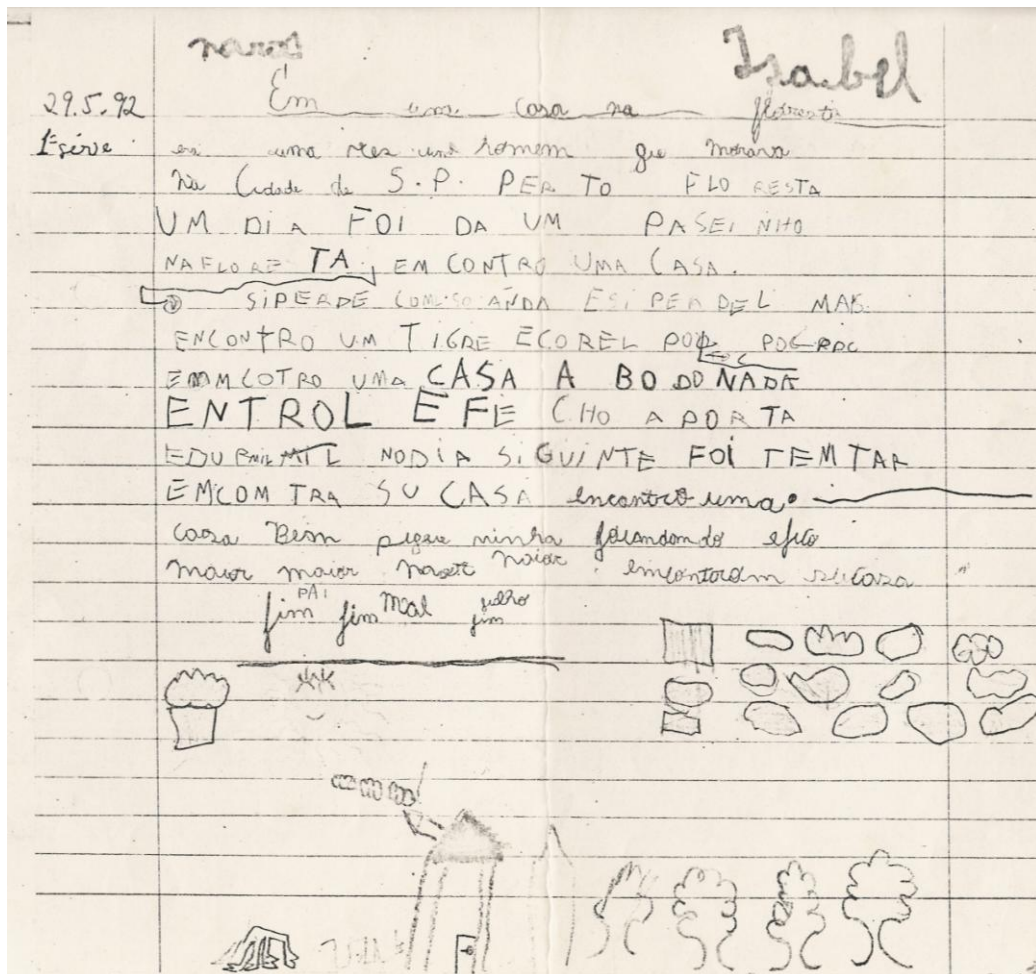 Isabel
29.5.92 Em uma casa na floresta
1ª série era uma ves um homem que morava
na Cidade de S.P. PERTO FLORESTA
UM DIA FOI DA UM PASEI NHO
NAFLORE TA, EM CONTRO UMA CASA.
SIPERDE COMISO AÑDA ESIPERDEL MAS.
ENCONTRO UM TIGRE ECOREL POR
EMMCOTRO UMA CASA A BODONADA
ENTROL E FE CHO APORTA
NODIA SIGUINTE FOI TEMTAR
EMCOMTRA SU CASA encontrou uma
casa Bem pigue ninha
maior maior maior emcontoram sucasa
fim PAI fim Mal filho fim